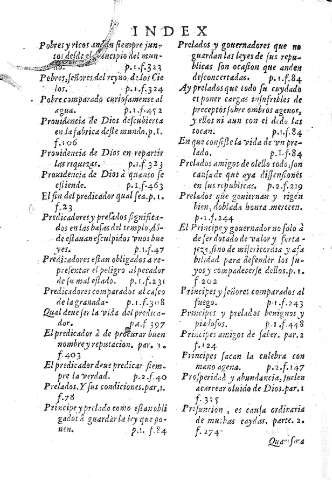 INDEX
Pobres y ricos andan siempre jun-
tos desde el principio del mun-
do. p.1.f.323
Pobres, señores del reyno de los Cie
los. p.1.f.324
Pobre comparado curiosamente al
agua. p.1.f.452
Prouidencia de Dios descubierta
en la fabrica deste mundo. p.1.
f.106
Prouidencia de Dios en repartir
las riquezas. p.1.f.323
Prouidencia de Dios à quanto se
estiende. p.1.f.463
El fin del predicador qual sea. p.1.
f.23
Predicadores y prelados significa-
dos en las basas del templo, dõ-
de estauan esculpidos vnos bue
yes. p.1.f.47
Predicadores estan obligados a re-
presentar el peligro al pecador
de su mal estado. p.1.f.231
Predicadores comparados al casco
de la granada. p.1.f.308
Qual deue ser la vida del predica-
dor. pa.f.397
El predicador à de procurar buen
nombre y reputacion. par.1.
f.403
El predicador deue predicar siem-
pre la verdad. p.2.f.40
Prelados. Y sus condiciones. par.1.
f.78
Principe y prelado como estan obli
gados à guardar la ley que po-
nen. p.1.f.84
Prelados y gouernadores que no
guardan las leyes de sus repu-
blicas son ocasion que anden
desconcertadas. p.1.f.84
Ay prelados que todo su cuydado
es poner cargas insufribles de
preceptos sobre ombros agenos,
y ellos ni aun con el dedo las
tocan. p.1.f.84
En que consiste la vida de vn pre-
lado. p.1.f.84
Prelados amigos de olello todo, son
causa de que aya dissensiones
en sus republicas. p.2.f.219
Prelados que gouiernan y rigen
bien, doblada honra merecen.
p.1.f.244
El Principe y gouernador no solo à
de ser dotado de valor y forta-
leza, sino de misericordia y afa
bilidad para defender los su-
yos y compadecerse dellos. p.1.
f.202
Principes y señores comparados al
fuego. p.1.f.243
Principes y prelados benignos y
piadosos. p.1.f.448
Principes amigos de saber. par.2
f.124
Principes sacan la culebra con
mano agena. p.2.f.147
Prosperidad y abundancia, suelen
acarrear oluido de Dios. par.1
f.315
Presuncion, es causa ordinaria
de muchas caydas. parte.2.
f.174
Quaresma